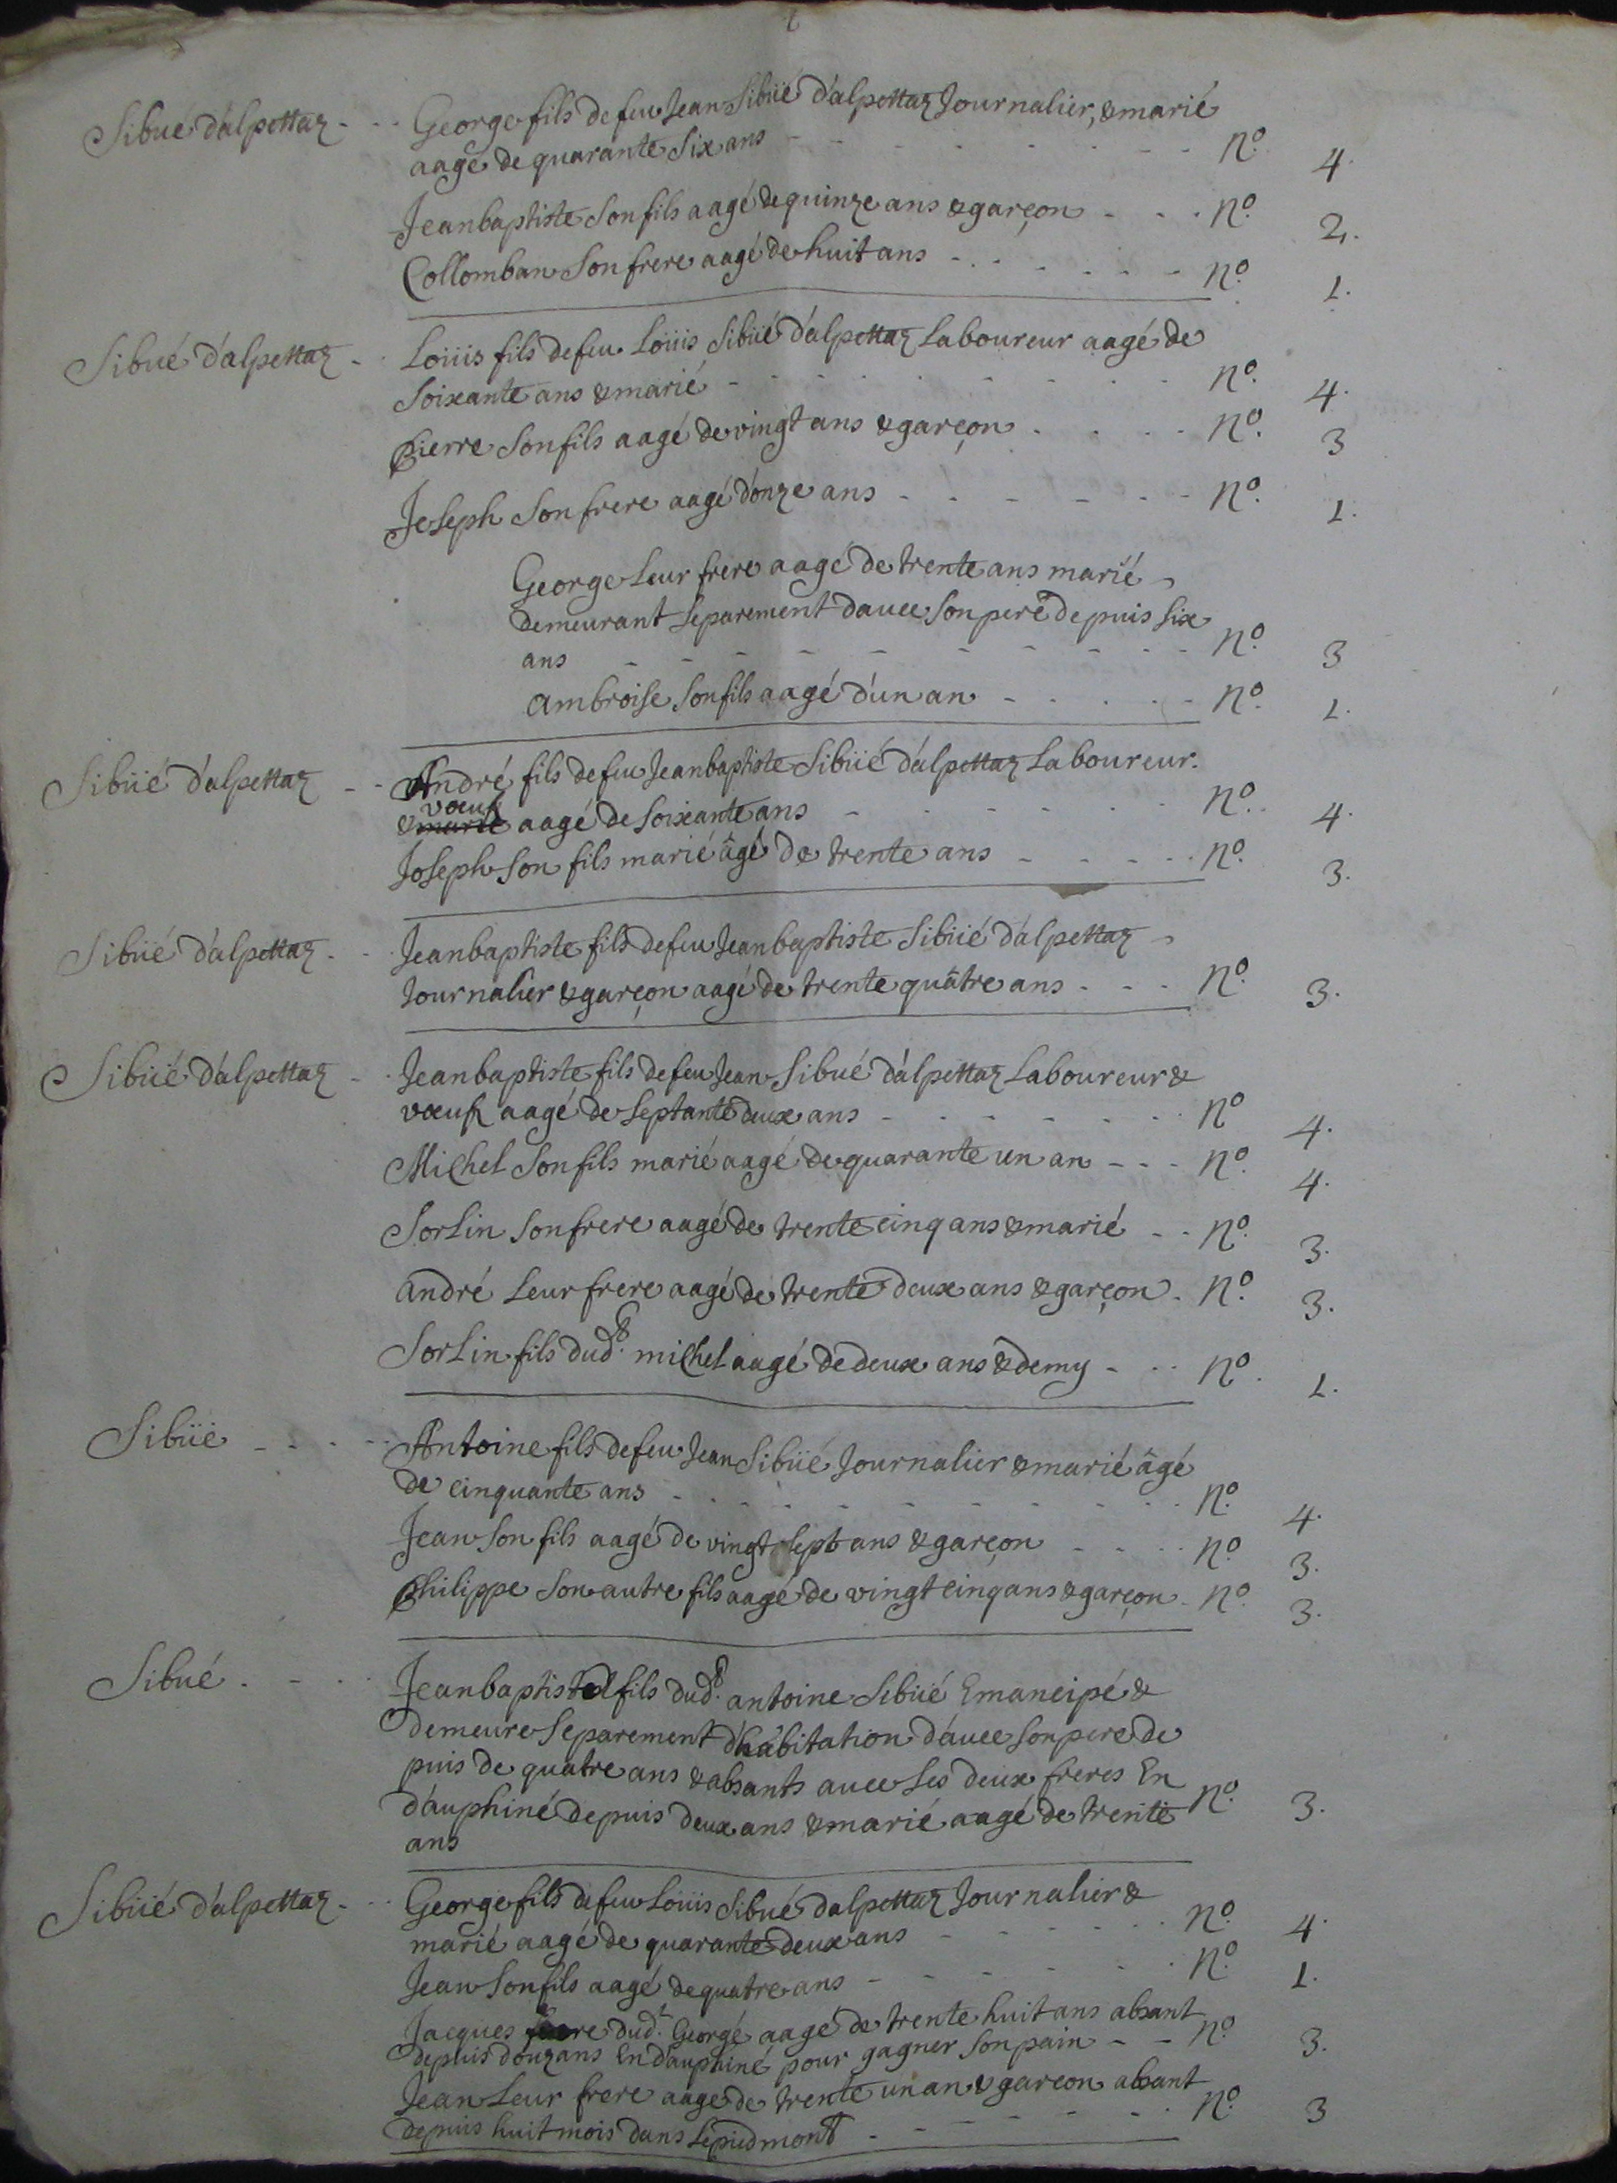 Sibué d'alpettaz - - George fils de feu Jean Sibüé d'alpettaz Journalier, & marié
aagé de quarante Six ans - - - - - - - n.º 4.
Jeanbaptiste Son fils aagé de quinze ans & garçon - - - n.º 2.
Collomban Son frere aagé de huit ans - - - - - - n.º 1.
Sibué d'alpettaz - Loüis fils de feu Loüis Sibüé d'alpettaz Laboureur aagé de
Soixante ans & marié - - - - - - - n.º 4.
Pierre Son fils aagé de vingt ans & garçon - - - - n.º 3
Joseph Son frere aagé d'onze ans - - - - - - n.º 1.
George Leur frere aagé de trente ans marié
demeurant Separement d'auec Son pere depuis Six
ans - - - - - - - - n.º 3
Ambroise Son fils aagé d'un an - - - - - n.º 1.
Sibüé d'alpettaz - - André fils de feu Jeanbaptiste Sibüé d'alpettaz Laboureur.
vœuf
& marié aagé de Soixante ans - - - - - - n.º 4.
Joseph Son fils marié âgé de trente ans - - - - - n.º 3.
Sibüé d'alpettaz - - Jeanbaptiste fils de feu Jeanbaptiste Sibüé d'alpettaz
Journalier & garçon aagé de trente quâtre ans - - - n.º 3.
Sibüé d'alpettaz - Jeanbaptiste fils de feu Jean Sibué d'alpettaz Laboureur &
vœuf aagé de Septante deux ans - - - - - - n.º 4.
Michel Son fils marié aagé de quarante un an - - - n.º 4.
Sorlin Son frere aagé de trente cinq ans & marié - - n.º 3.
André Leur frere aagé de trente deux ans & garçon - n.º 3.
Sorlin fils dud.t michel aagé de deux ans & demy - - - n.º 1.
Sibüé - - - - Antoine fils de feu Jean Sibüé Journalier & marié âgé
de cinquante ans - - - - - - - - n.º 4.
Jean Son fils aagé de vingt Sept ans & garçon - - - - n.º 3.
Philippe Son autre fils aagé de vingt cinq ans & garçon - n.º 3.
Sibué - - - Jeanbaptiste fils dud.t antoine Sibüé Emancipé &
demeure Separement d'habitation d'auec Son pere de
puis de quatre ans & absants auec Ses deux freres En
d'auphiné depuis deux ans & marié aagé de trente n.º 3.
ans
Sibüé d'alpettaz - - George fils de feu Loüis Sibué dalpettaz Journalier &
marié aagé de quarante deux ans - - - - - n.º 4.
Jean Son fils aagé de quatre ans - - - - - - n.º 1.
Jacques frere dud.t George aagé de trente huit ans absant
depuis douz ans En d'auphiné pour gagner Son pain - - n.º 3.
Jean Leur frere aagé de trente un an & garcon absant
depuis huit mois dans Le piedmont - - - - - - n.º 3